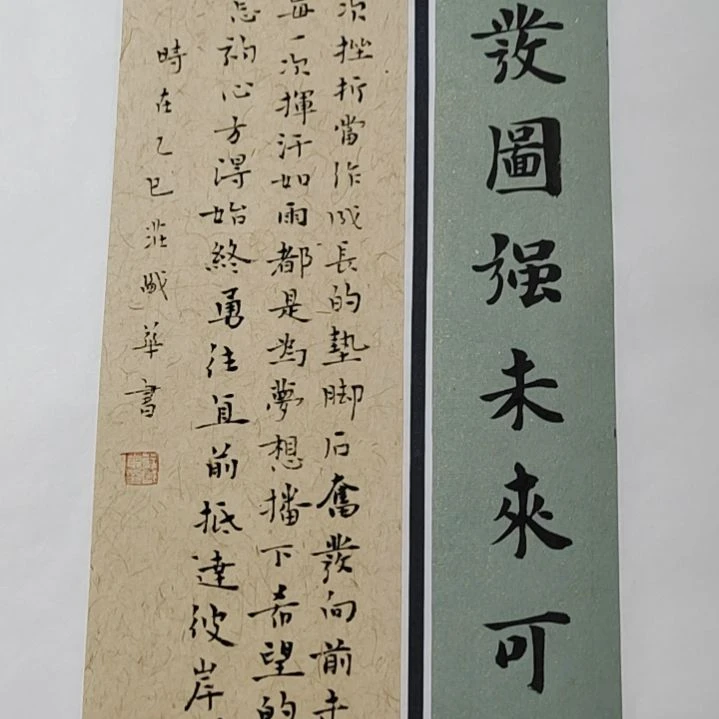 發圖强未來可
次挫折當作成長的墊脚石奮發向前走
每一次揮汗如雨都是為夢想播下希望的
忘初心方得始終勇往直前抵達彼岸
時在乙巳莊晟華書